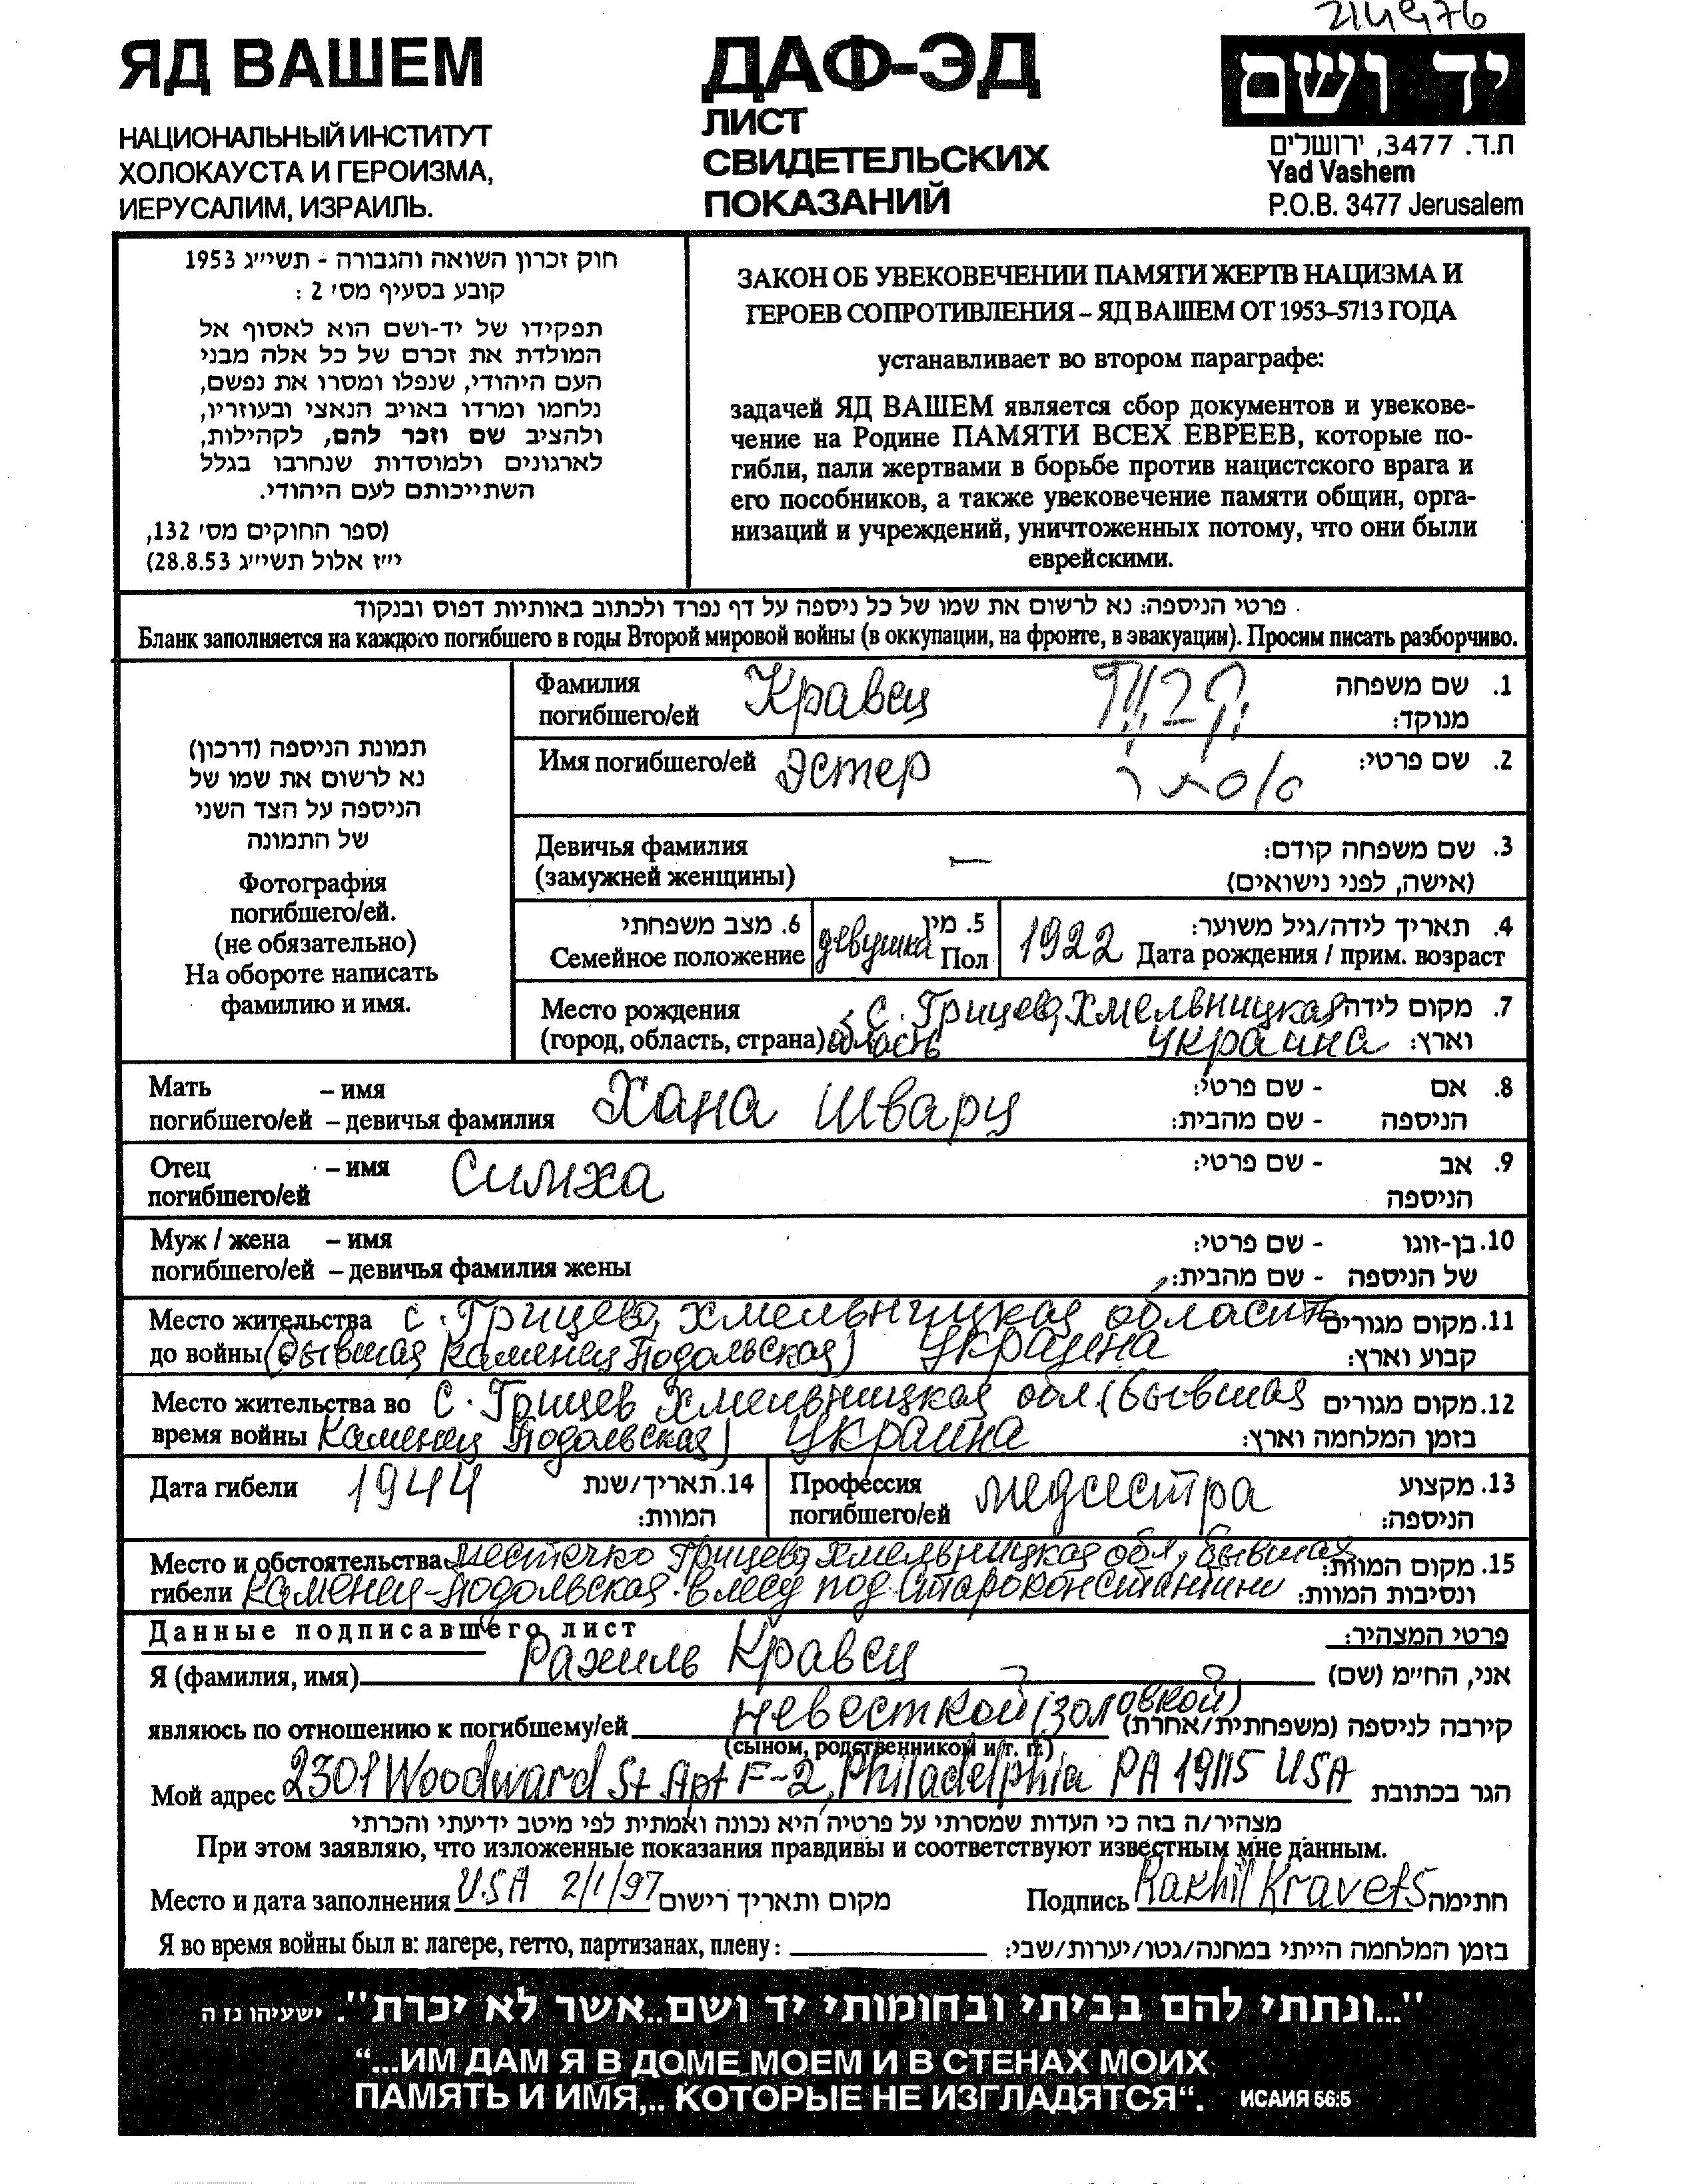 214976
ЯД ВАШЕМ
НАЦИОНАЛЬНЫЙ ИНСТИТУТ
ХОЛОКАУСТА И ГЕРОИЗМА,
ИЕРУСАЛИМ, ИЗРАИЛЬ.
ДАФ-ЭД
ЛИСТ
СВИДЕТЕЛЬСКИХ
ПОКАЗАНИЙ
יד ושם
ת.ד. 3477, ירושלים
Yad Vashem
P.O.B. 3477 Jerusalem
חוק זכרון השואה והגבורה - תשי״ג 1953
קובע בסעיף מס׳ 2 :
תפקידו של יד-ושם הוא לאסוף אל
המולדת את זכרם של כל אלה מבני
העם היהודי, שנפלו ומסרו את נפשם,
נלחמו ומרדו באויב הנאצי ובעוזריו,
ולהציב שם וזכר להם, לקהילות,
לארגונים ולמוסדות שנחרבו בגלל
השתייכותם לעם היהודי.
(ספר החוקים מס׳ 132,
י״ז אלול תשי״ג 28.8.53)
ЗАКОН ОБ УВЕКОВЕЧЕНИИ ПАМЯТИ ЖЕРТВ НАЦИЗМА И
ГЕРОЕВ СОПРОТИВЛЕНИЯ – ЯД ВАШЕМ ОТ 1953–5713 ГОДА
устанавливает во втором параграфе:
задачей ЯД ВАШЕМ является сбор документов и увекове-
чение на Родине ПАМЯТИ ВСЕХ ЕВРЕЕВ, которые по-
гибли, пали жертвами в борьбе против нацистского врага и
его пособников, а также увековечение памяти общин, орга-
низаций и учреждений, уничтоженных потому, что они были
еврейскими.
פרטי הניספה: נא לרשום את שמו של כל ניספה על דף נפרד ולכתוב באותיות דפוס ובנקוד
Бланк заполняется на каждого погибшего в годы Второй мировой войны (в оккупации, на фронте, в эвакуации). Просим писать разборчиво.
תמונת הניספה (דרכון)
נא לרשום את שמו של
הניספה על הצד השני
של התמונה
Фотография
погибшего/ей.
(не обязательно)
На обороте написать
фамилию и имя.
Фамилия Кравец 1. שם משפחה
погибшего/ей מנוקד:
Имя погибшего/ей Эстер אסתר 2. שם פרטי:
Девичья фамилия — 3. שם משפחה קודם:
(замужней женщины) (אישה, לפני נישואים)
6. מצב משפחתי 5. מין 4. תאריך לידה/גיל משוער:
Семейное положение девушка Пол 1922 Дата рождения / прим. возраст
Место рождения с. Грицев, Хмельницкая 7. מקום לידה
(город, область, страна) область Украина וארץ:
Мать – имя Хана Шварц - שם פרטי: 8. אם
погибшего/ей – девичья фамилия - שם מהבית: הניספה
Отец – имя Симха - שם פרטי: 9. אב
погибшего/ей הניספה
Муж / жена – имя - שם פרטי: 10. בן-זוגו
погибшего/ей – девичья фамилия жены - שם מהבית: של הניספה
Место жительства с. Грицев, Хмельницкая область 11. מקום מגורים
до войны (бывшая Каменец Подольская) Украина קבוע וארץ:
Место жительства во с. Грицев Хмельницкая обл. (бывшая 12. מקום מגורים
время войны Каменец Подольская) Украина בזמן המלחמה וארץ:
Дата гибели 1944 14. תאריך/שנת המוות:
Профессия погибшего/ей медсестра 13. מקצוע הניספה:
Место и обстоятельства местечко Грицев, Хмельницкая обл, бывшая 15. מקום המוות:
гибели Каменец-Подольская. в лесу под Староконстантини ונסיבות המוות:
Данные подписавшего лист פרטי המצהיר:
Я (фамилия, имя) Рахиль Кравец אני, החי״מ (שם)
являюсь по отношению к погибшему/ей невесткой (золовкой) קירבה לניספה (משפחתית/אחרת)
(сыном, родственником и т. п.)
Мой адрес 2301 Woodward St Apt F-2, Philadelphia PA 19115 USA הגר בכתובת
מצהיר/ה בזה כי העדות שמסרתי על פרטיה היא נכונה ואמתית לפי מיטב ידיעתי והכרתי
При этом заявляю, что изложенные показания правдивы и соответствуют известным мне данным.
Место и дата заполнения USA 2/1/97 מקום ותאריך רישום Подпись Rakhil Kravets חתימה
Я во время войны был в: лагере, гетто, партизанах, плену : בזמן המלחמה הייתי במחנה/גטו/יערות/שבי:
"...ונתתי להם בביתי ובחומותי יד ושם..אשר לא יכרת". ישעיהו נז ה
“...ИМ ДАМ Я В ДОМЕ МОЕМ И В СТЕНАХ МОИХ
ПАМЯТЬ И ИМЯ,.. КОТОРЫЕ НЕ ИЗГЛАДЯТСЯ“. ИСАИЯ 56:5